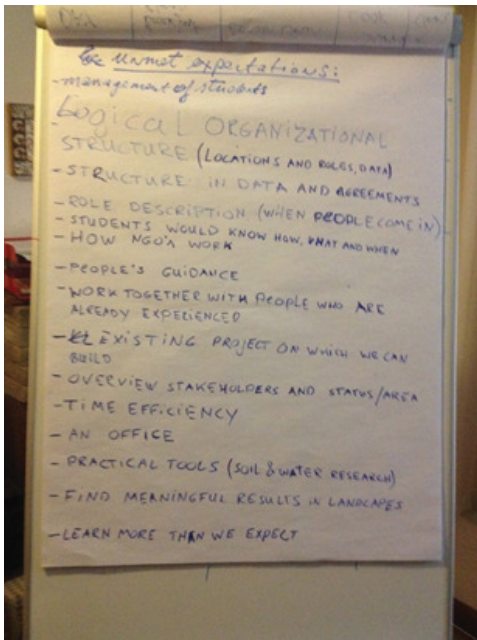 Unmet expectations:
- management of students
- Logical ORGANIZATIONAL
STRUCTURE (LOCATIONS AND ROLES, DATA)
- STRUCTURE IN DATA AND AGREEMENTS
- ROLE DESCRIPTION (WHEN PEOPLE COME IN)
- STUDENTS WOULD KNOW HOW, WHAT AND WHEN
- HOW NGO'A WORK
- PEOPLE'S GUIDANCE
- WORK TOGETHER WITH PEOPLE WHO ARE
ALREADY EXPERIENCED
- EXISTING PROJECT ON WHICH WE CAN
BUILD
- OVERVIEW STAKEHOLDERS AND STATUS/AREA
- TIME EFFICIENCY
- AN OFFICE
- PRACTICAL TOOLS (SOIL & WATER RESEARCH)
- FIND MEANINGFUL RESULTS IN LANDSCAPES
- LEARN MORE THAN WE EXPECT